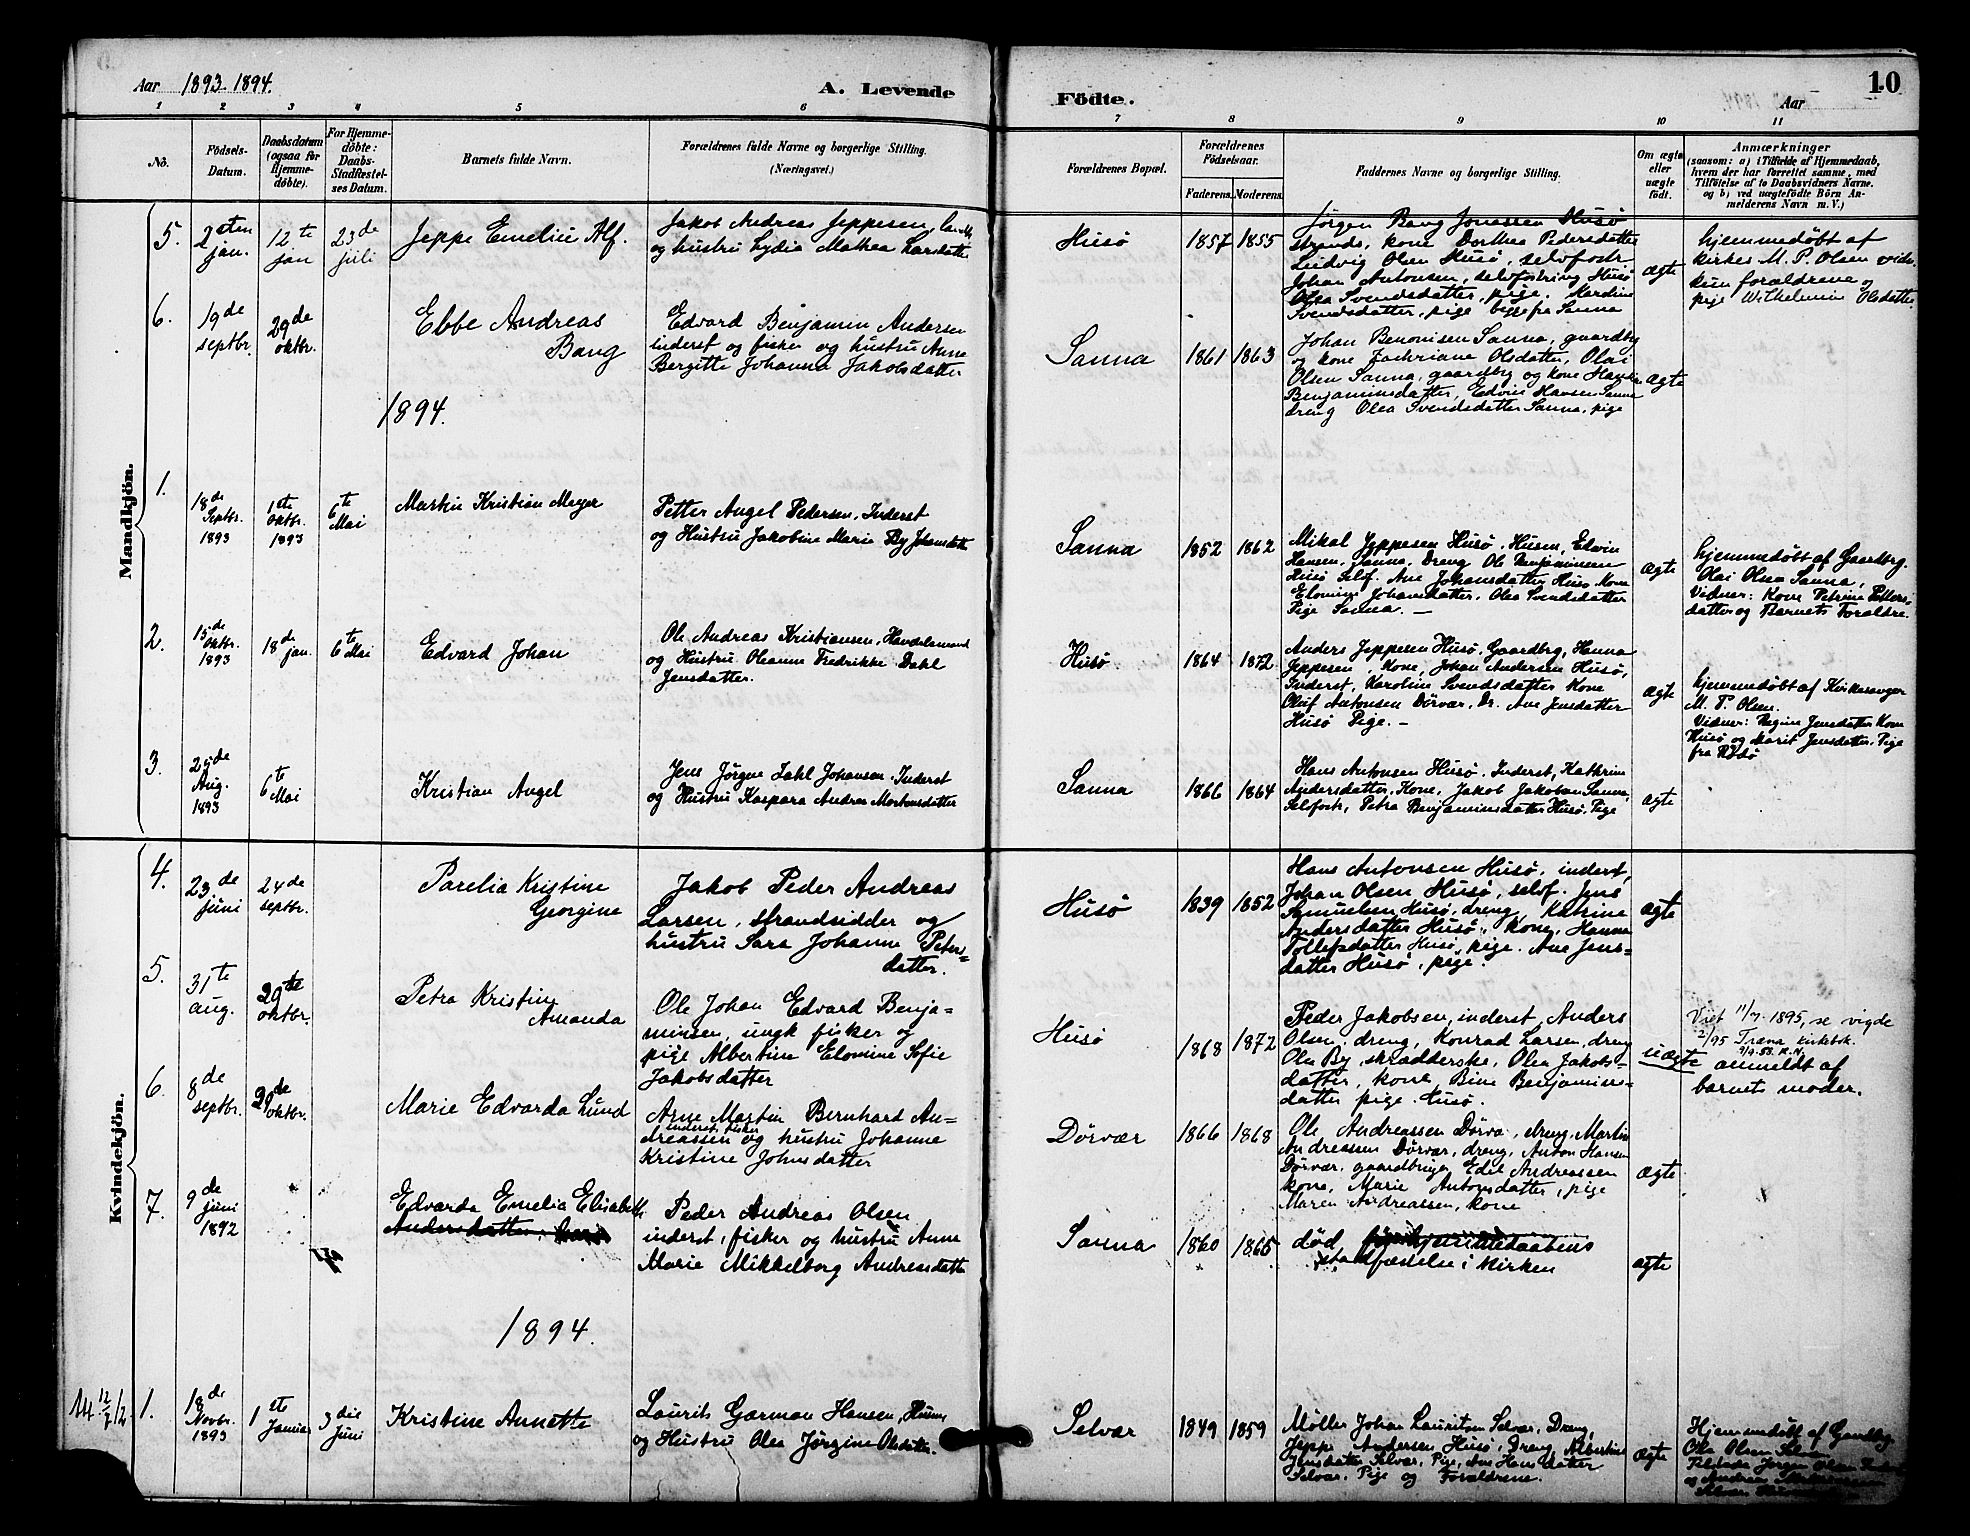 Aar 1893. 1894.
A. Levende Födte.
Aar
10
1 2 3 4 5 6 7 8 9 10 11
No.
Födsels-Datum.
Daabsdatum (ogsaa for Hjemme-döbte).
For Hjemme-döbte: Daabs-Stadfæstel-ses Datum.
Barnets fulde Navn.
Forældrenes fulde Navne og borgerlige Stilling. (Næringsvei.)
Forældrenes Bopæl.
Forældrenes Födselsaar.
Faderens. Moderens.
Faddernes Navne og borgerlige Stilling.
Om ægte eller uægte födt.
Anmærkninger
(saasom: a) i Tilfælde af Hjemmedaab,
hvem der har forrettet samme, med
Tilföielse af to Daabsvidners Navne.
og b) ved uægtefödte Börn An-
melderens Navn m. V.)
Mandkjön.
5. 2den jan. 12te jan 23de juli
Jeppe Emeliu Alf.
Jakob Andreas Jeppesen,
og hustru Lydia Mathea Larsdatter
Husø 1857 1855
Jörgen Bang Jonassen Husö
strands, kone Dorthea Pedersdatter
Ludvig Olsen Husö, selvfostr
Johan Antonsen, selvfostring Husö
Olea Svendsdatter, pige. Karoline
Svendsdatter, pige begge fra Sanna
ægte
hjemmedøbt af
kirkes M. P. Olsen vidn.
kun forældrene og
pige Wilhelmine Olsdatter
6. 19de septbr. 29de oktbr.
Ebbe Andreas
Bang
Edvard Benjamin Andersen
inderst og fisker og hustru Anne
Bergitte Johanna Jakobsdatter
Sanna 1861 1863
Johan Benonisen Sanna, gaardbg
og kone Zachriane Olsdatter, Olai
Olsen Sanna, gaardbg og kone
Benjaminsdatter, Edvin Hansen Sanna
dreng Olea Svendsdatter Sanna, pige
ægte
1894.
1. 18de Septbr. 1893 1ste Oktbr. 1893 6te Mai
Martin Kristian Meyer
Petter Angel Pedersen, Inderst
og Hustru Jakobine Marie By Johansdatter
Sanna 1852 1862
Mikal Jeppesen Husö, Husm, Edvin
Hansen, Sanna, Dreng Ole Benjaminsen
Husö Selvf. Ane Johansdatter Husö Kone
Elomine Johansdatter, Olea Svendsdatter
Pige Sanna. —
ægte
hjemmedøbt af Gaardbrg.
Olai Olsen Sanna,
Vidner: Kone Petrine Petters-
datter og Barnets Forældre.
2. 15de Oktbr. 1893 18de jan. 6te Mai
Edvard Johan
Ole Andreas Kristiansen, Handelsmand
og Hustru Oleanna Fredrikke Dahl
Jensdatter.
Husø 1864 1872
Anders Jeppesen Husö, Gaardbrg, Hanna
Jeppesen, Kone, Johan Andersen Husö,
Inderst, Karoline Svendsdatter Kone
Oluf Antonsen Dörvær, Dr. Ane Jensdatter
Husö Pige. —
ægte
hjemmedøbt af Kirkesanger
M. P. Olsen.
Vidner: Regine Jensdatter Kone
Husö og Marit Jensdatter, Pige
fra Rödö
3. Aug. 1893 6te Mai
Kristian Angel
Jens Jörgen Zahl Johansen, Inderst
og Hustru Kaspara Andrea Mortensdatter
Sanna 1866 1864
Hans Antonsen Husö, Inderst, Kathrine
Andersdatter, Kone, Jakob Jakobsen Sanna,
Selvfostr, Petra Benjaminsdatter Husö, Pige
ægte
Kvindekjön.
4. 23de juni 24de septbr.
Parelia Kristine
Georgine
Jakob Peder Andreas
Larsen, strandsidder og
hustru Sara Johanne Peters=
datter.
Husø 1839 1852
Hans Antonsen Husö, inderst,
Johan Olsen Husö, selvf. Jens
Samuelsen Husö, dreng, Katrine
Andersdatter Husö, kone, Hanna
Tollefsdatter Husö, pige. Ane Jens=
datter Husö, pige.
ægte
5. 31te aug. 29de oktbr.
Petra Kristine
Amanda
Ole Johan Edvard Benja=
minsen, ungk fisker og
pige Albertine Elomine Sofie
Jakobsdatter
Husø 1868 1872
Peder Jakobsen, inderst, Anders
Olsen, dreng, Konrad Larsen, dreng
Ole By, skrædderske, Olea Jakobs=
datter, kone, Bine Benjamins=
datter pige. Husö.
uægte
Viet 11/7 1895, se vigde
2/95 Træna kirkebk.
9/9.53. R.N.
anmeldt af
barnets moder.
6. 8de septbr. 29de oktbr.
Marie Edvarda Lund
Arne Martin Bernhard An=
inderst fisker
dreassen og hustru Johanna
Kristine Johnsdatter
Dörvær 1866 1868
Ole Andreassen Dörva, dreng, Martin
Andreassen Dörvær, dreng, Anton Hansen
Dörvær, gaardbruger Edel Andreassen
kone, Marie Antonsdatter, pige
Maren Andreassen, kone
ægte
7. 9de juni 1892
Edvarda Emelia Elisabeth
Andersdatter
Peder Andreas Olsen
inderst, fisker og hustru Anne
Marie Mikkelborg Andreasdatter
Sanna 1860 1865
død før hjemmedaabens
stadfæstelse i kirken
ægte
1894.
14 12/7 1/2.
1. 18de Novbr. 1893 1ste Januar 3die Juni
Kristine Annette
Laurits Garman Hansen, Husm
og Hustru Olea Jörgine Olsdatter.
Selvær 1849 1859
Møller Johan Lauritsen Selvær, Dreng,
Jeppe Andersen Husö, Dreng, Albertine
Jensdatter Selvær, Pige, Ane Hansdatter
Selvær, Pige og Forældrene.
ægte
Hjemmedøbt af Gaardbg
Ole Olsen Selvær